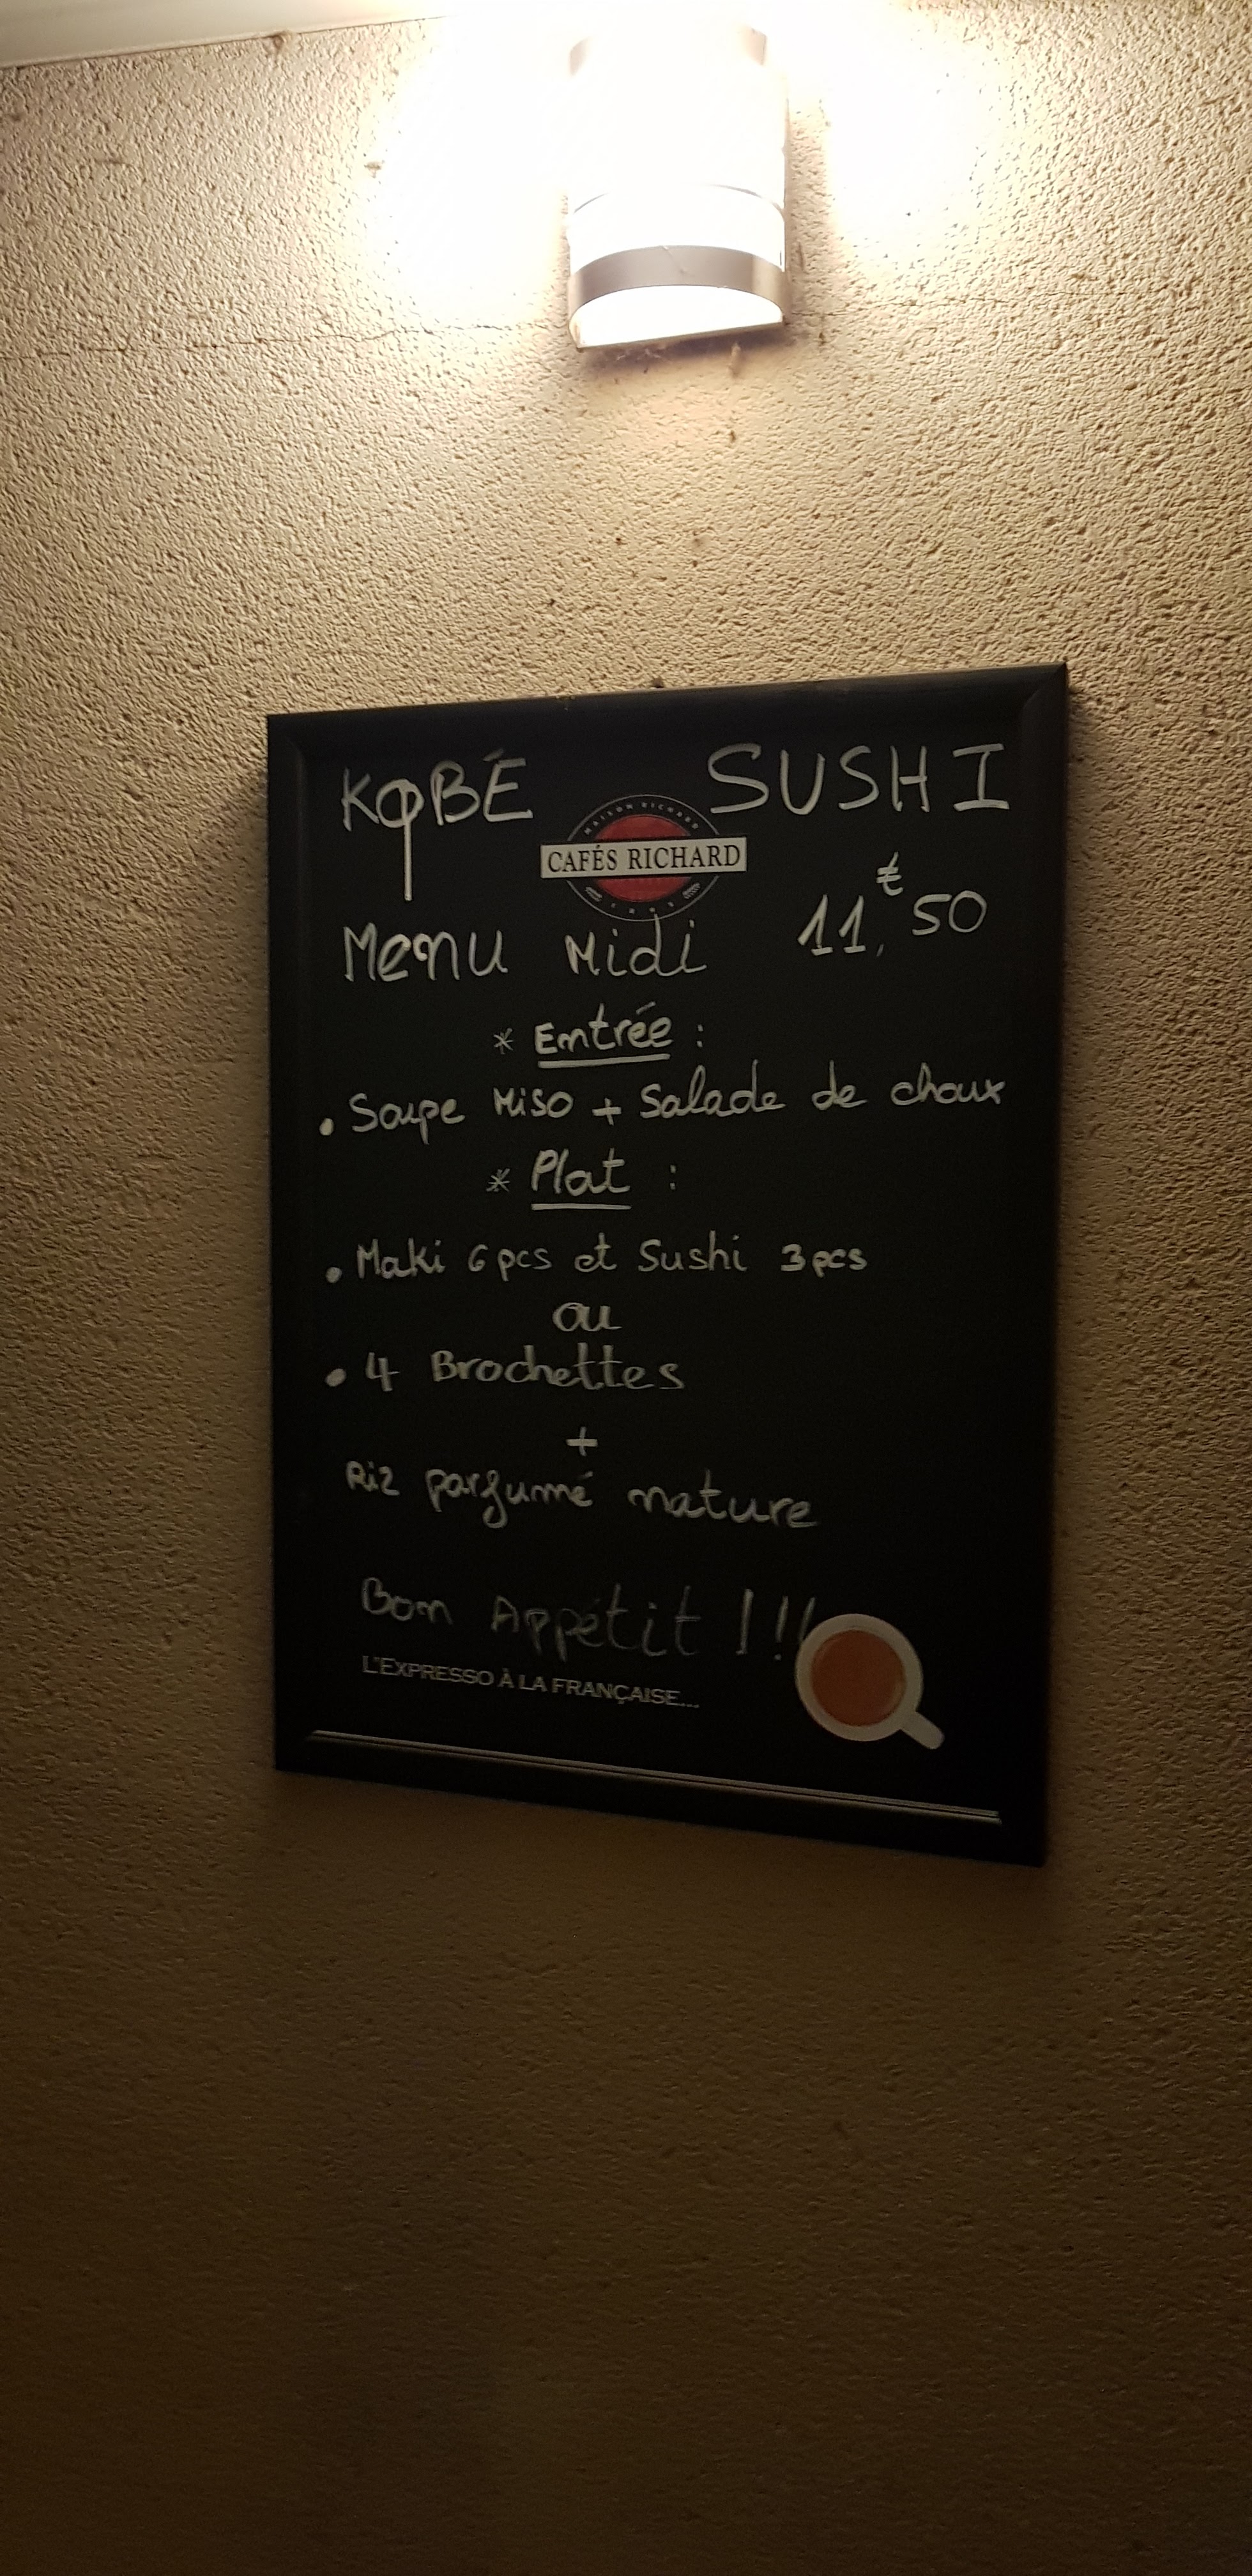 KOBÉ SUSHI
MAISON RICHARD
CAFÉS RICHARD
PARIS
Menu Midi 11,€50
* Entrée :
• Soupe Miso + Salade de choux
* Plat :
• Maki 6 pcs et Sushi 3 pcs
ou
• 4 Brochettes
+
Riz parfumé nature
Bon Appétit !!!
L'EXPRESSO À LA FRANÇAISE...